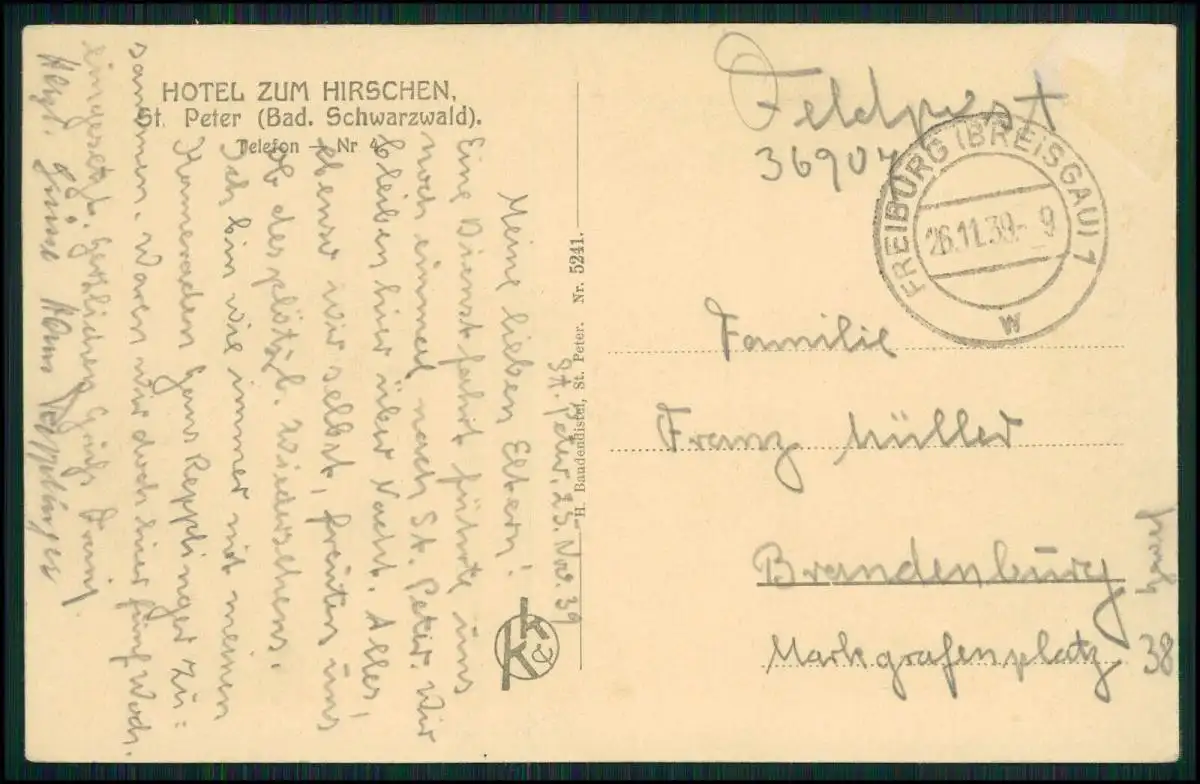 HOTEL ZUM HIRSCHEN,
St. Peter (Bad. Schwarzwald).
Telefon — Nr 4.
St. Peter. 25. Nov. 39
Meine lieben Eltern!
Eine Dienstfahrt führte uns
noch einmal nach St. Peter. Wir
bleiben hier über Nacht. Alles,
ebenso wir selbst, freuten uns
ob des plötzl. Wiedersehens.
Ich bin wie immer mit meinen
Kameraden Hans Repplinger zu=
sammen. Waren wir doch hier fünf Woch.
eingesetzt. Herzlichen Gruß
Herzl. Grüsse Hans Repplinger
H. Baudendistel, St. Peter. Nr. 5241.
K & K
Feldpost
36907
FREIBURG (BREISGAU) 1
26.11.39.- 9
w
Familie
Franz Müller
Brandenburg
Havel
Markgrafenplatz 38